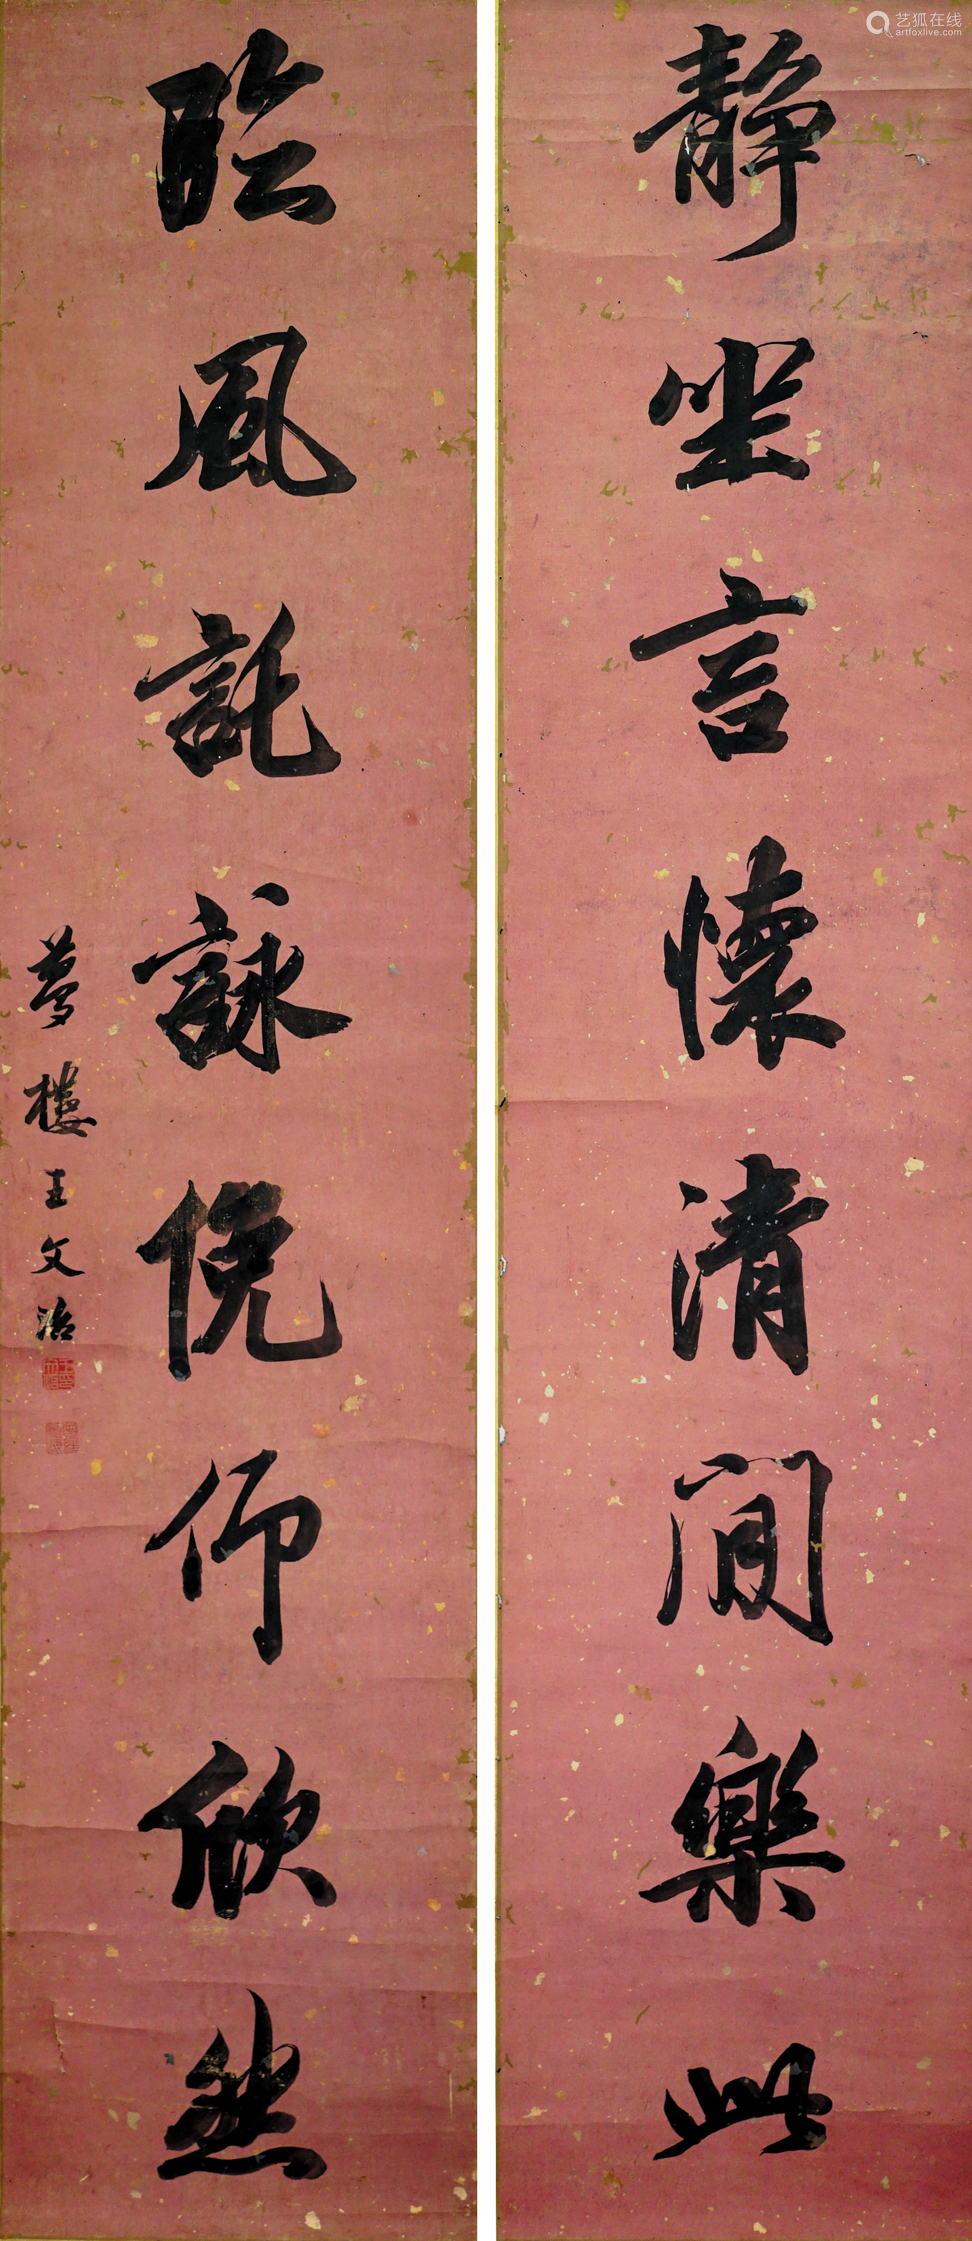 静坐言懷清閒樂此
臨風託詠俛仰欣然
夢樓王文治
艺狐在线
artfoxlive.com